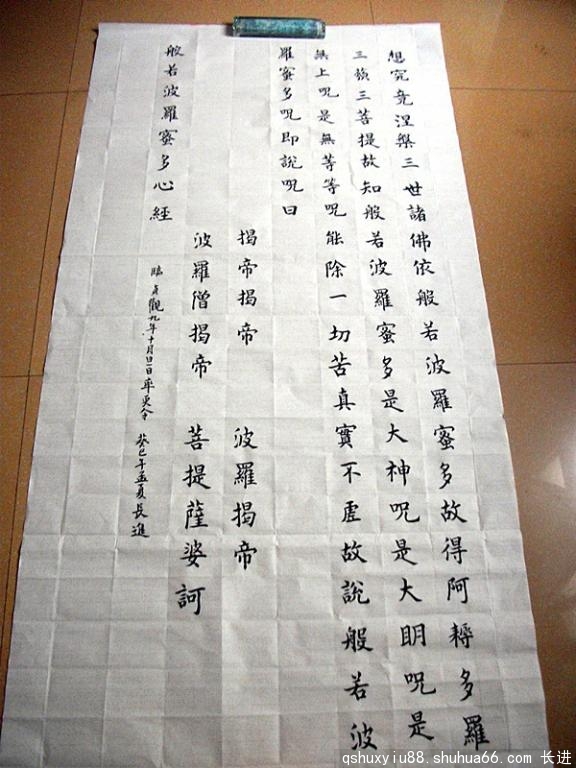 想究竟涅槃三世諸佛依般若波羅蜜多故得阿耨多羅
三藐三菩提故知般若波羅蜜多是大神呪是大眀呪是
無上呪是無等等呪能除一切苦真實不虛故說般若波
羅蜜多呪即說呪曰
揭帝揭帝 波羅揭帝
波羅僧揭帝 菩提薩婆訶
般若波羅蜜多心經
臨貞觀九年十月旦日率更令 癸巳年孟夏長進
qshuxyiu88.shuhua66.com 长进